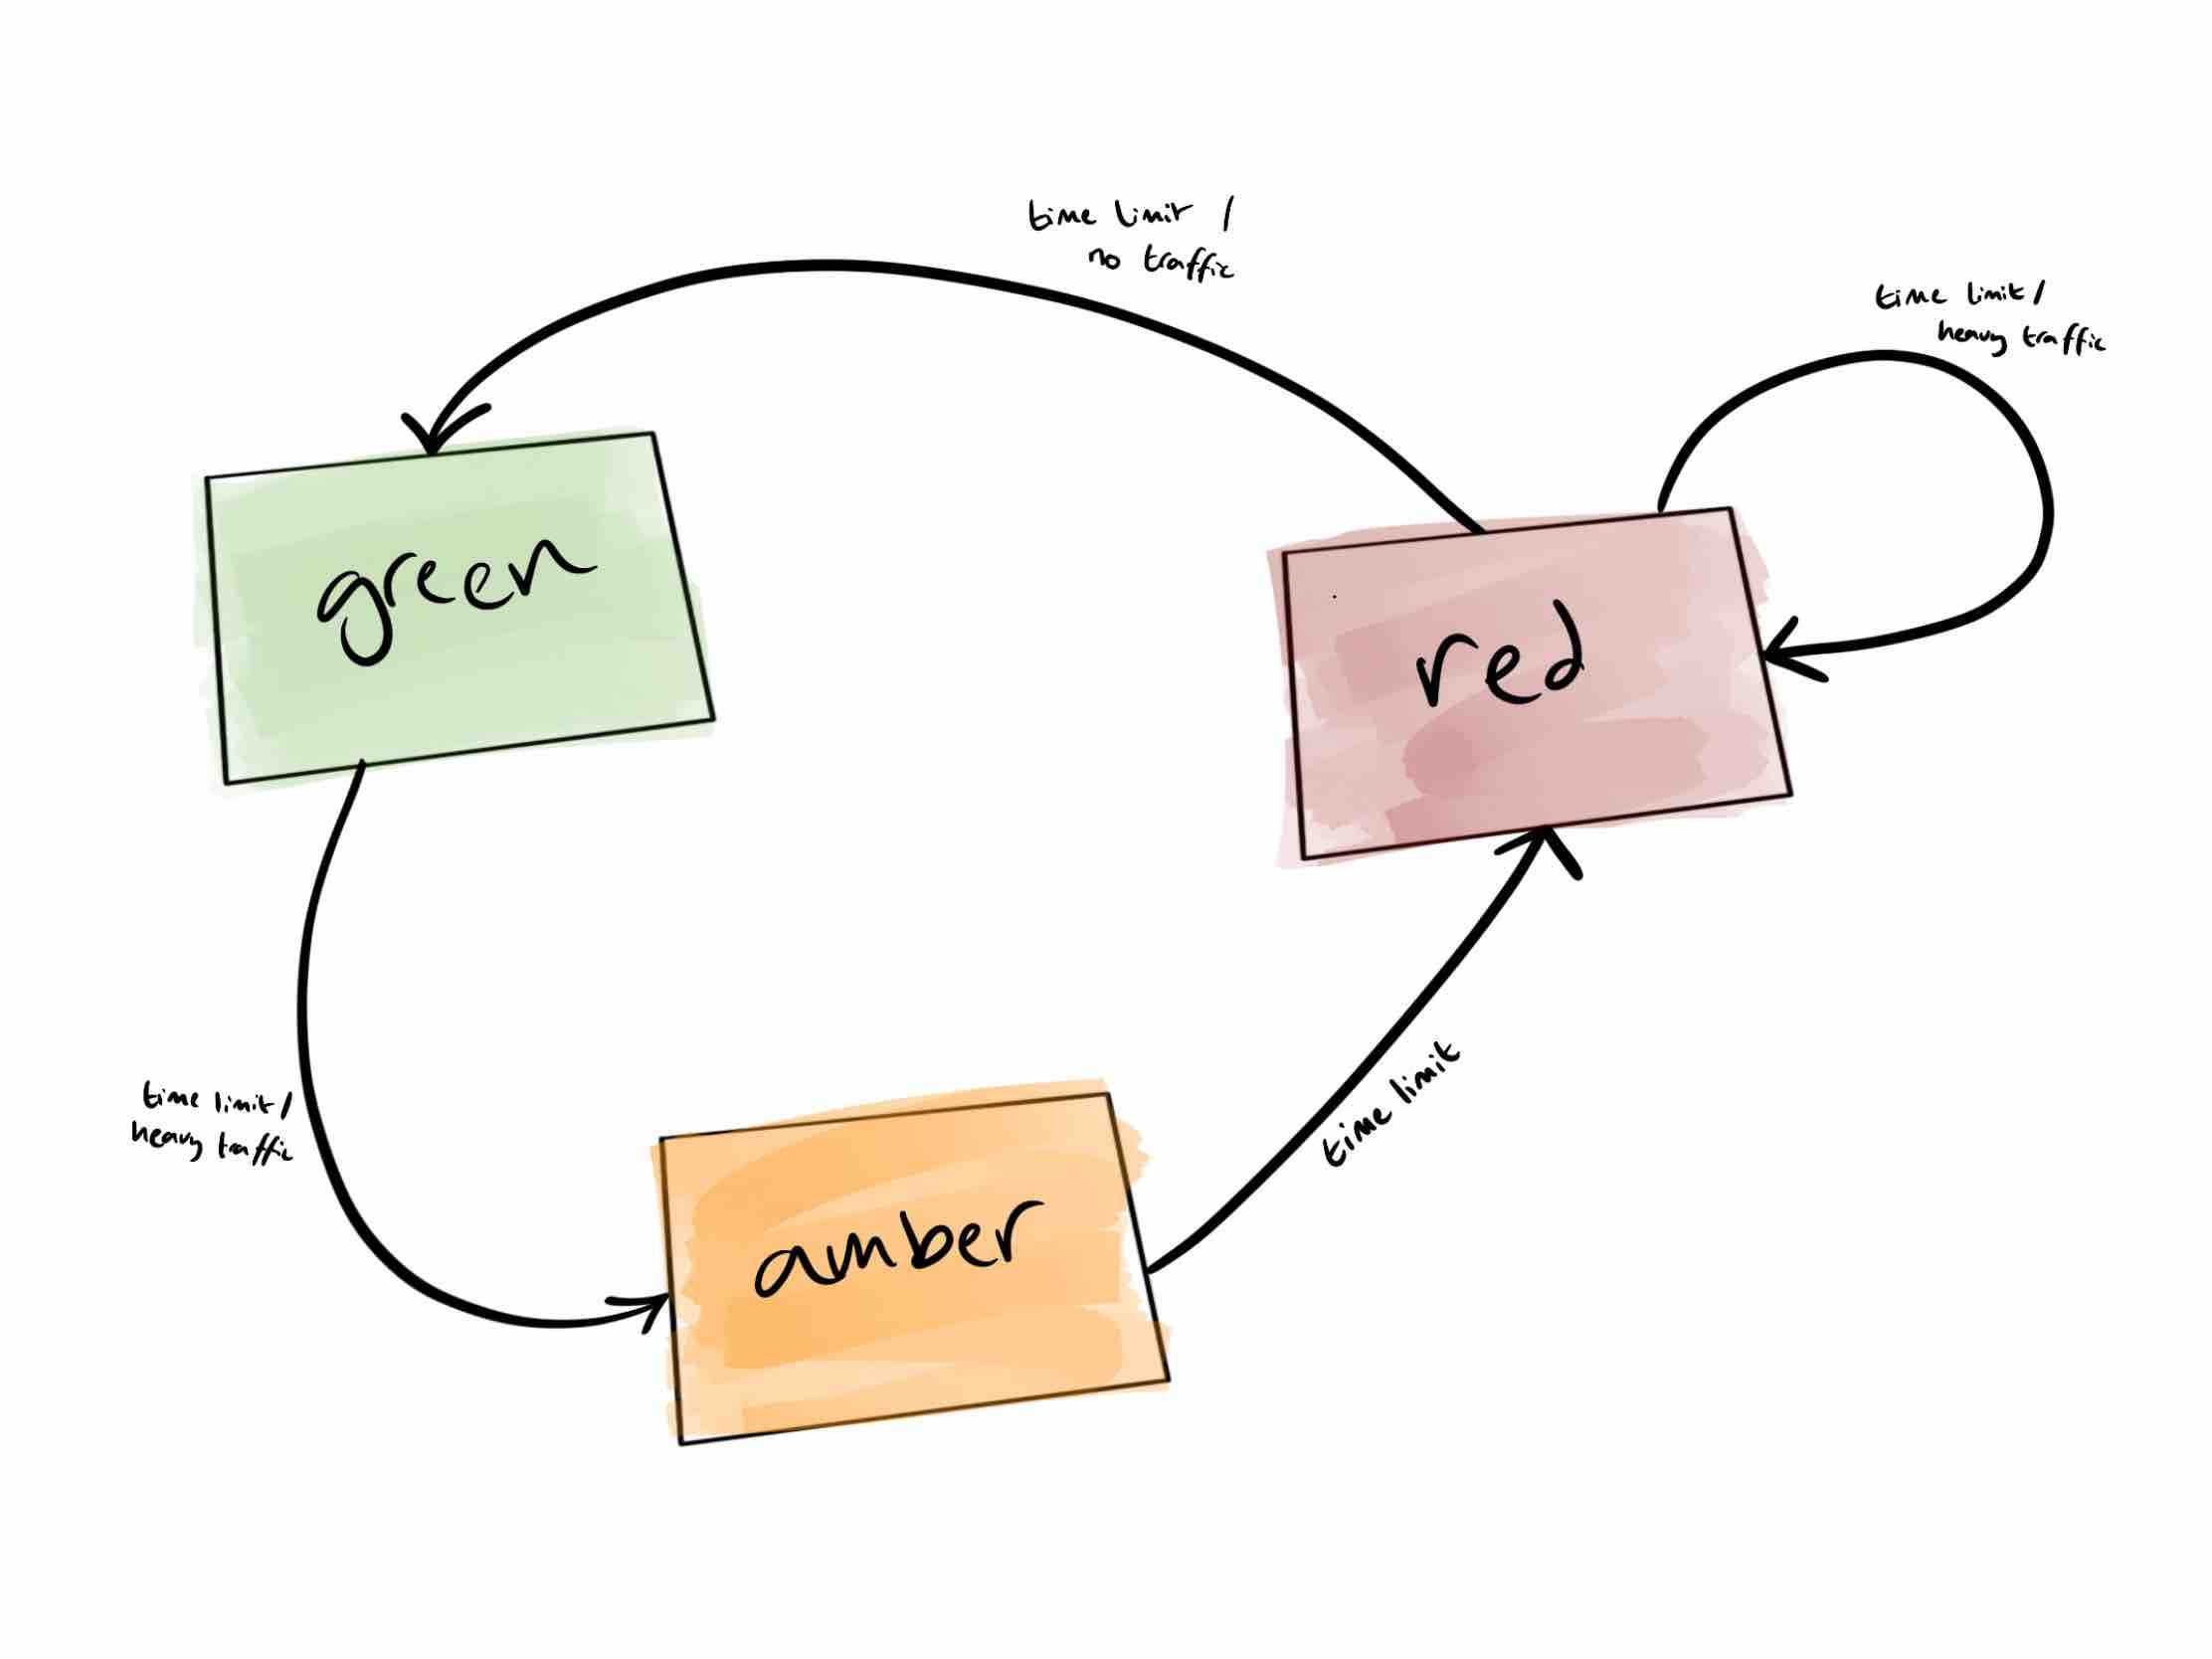 time limit /
no traffic
time limit /
heavy traffic
green
red
time limit /
heavy traffic
time limit
amber